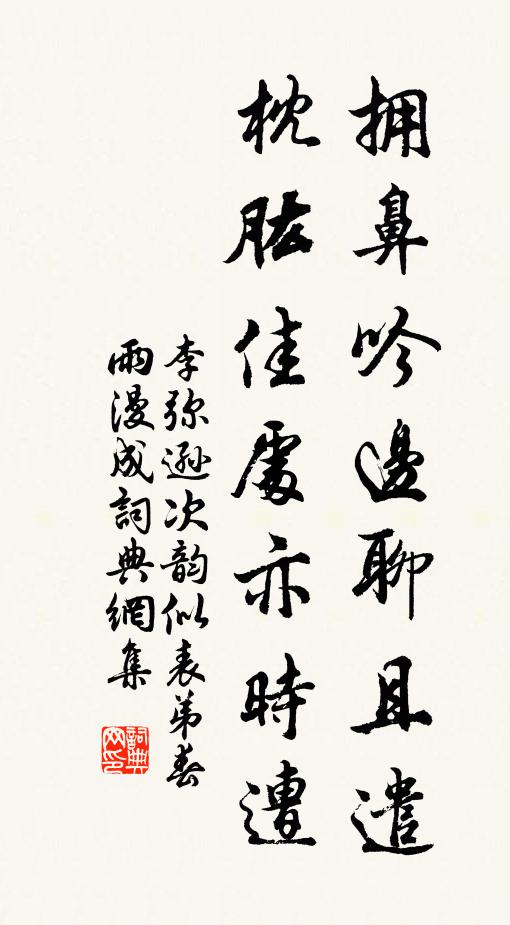 拥鼻吟邊聊且遣
枕肱佳處亦時遭
李弥遜次韵似表弟春
雨漫成詞典網集
詞典网印